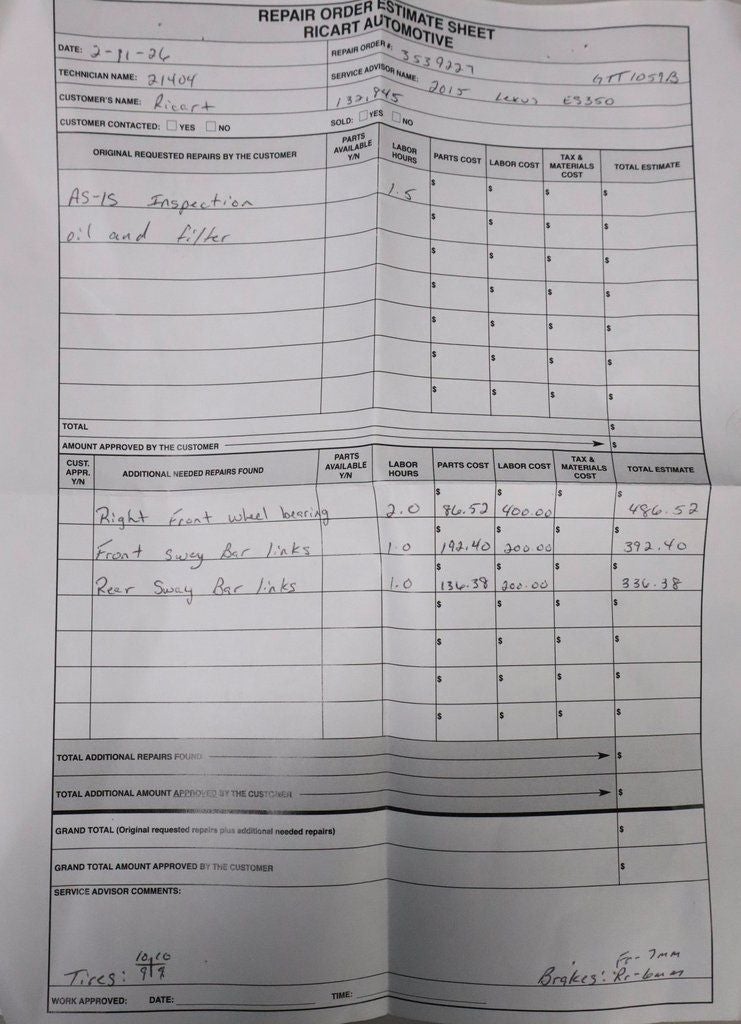 REPAIR ORDER ESTIMATE SHEET
RICART AUTOMOTIVE
DATE: 2-11-26
REPAIR ORDER #: 3539227
TECHNICIAN NAME: 21404
SERVICE ADVISOR NAME: 2015 Lexus ES350
GTT1059B
CUSTOMER'S NAME: Ricart
132,945
CUSTOMER CONTACTED: YES NO
SOLD: YES NO
ORIGINAL REQUESTED REPAIRS BY THE CUSTOMER PARTS AVAILABLE Y/N LABOR HOURS PARTS COST LABOR COST TAX & MATERIALS COST TOTAL ESTIMATE
AS-IS Inspection 1.5 $ $ $ $
oil and filter $ $ $ $
$ $ $ $
$ $ $ $
$ $ $ $
$ $ $ $
$ $ $ $
TOTAL $
AMOUNT APPROVED BY THE CUSTOMER $
CUST. APPR. Y/N ADDITIONAL NEEDED REPAIRS FOUND PARTS AVAILABLE Y/N LABOR HOURS PARTS COST LABOR COST TAX & MATERIALS COST TOTAL ESTIMATE
Right Front wheel bearing 2.0 $ 86.52 $ 400.00 $ $ 486.52
Front Sway Bar links 1.0 $ 192.40 $ 200.00 $ $ 392.40
Rear Sway Bar links 1.0 $ 136.38 $ 200.00 $ $ 336.38
$ $ $ $
$ $ $ $
$ $ $ $
$ $ $ $
TOTAL ADDITIONAL REPAIRS FOUND $
TOTAL ADDITIONAL AMOUNT APPROVED BY THE CUSTOMER $
GRAND TOTAL (Original requested repairs plus additional needed repairs) $
GRAND TOTAL AMOUNT APPROVED BY THE CUSTOMER $
SERVICE ADVISOR COMMENTS:
10 10
Tires: 9 9
Fr- 7mm
Brakes: Rr-6mm
WORK APPROVED: DATE: TIME: